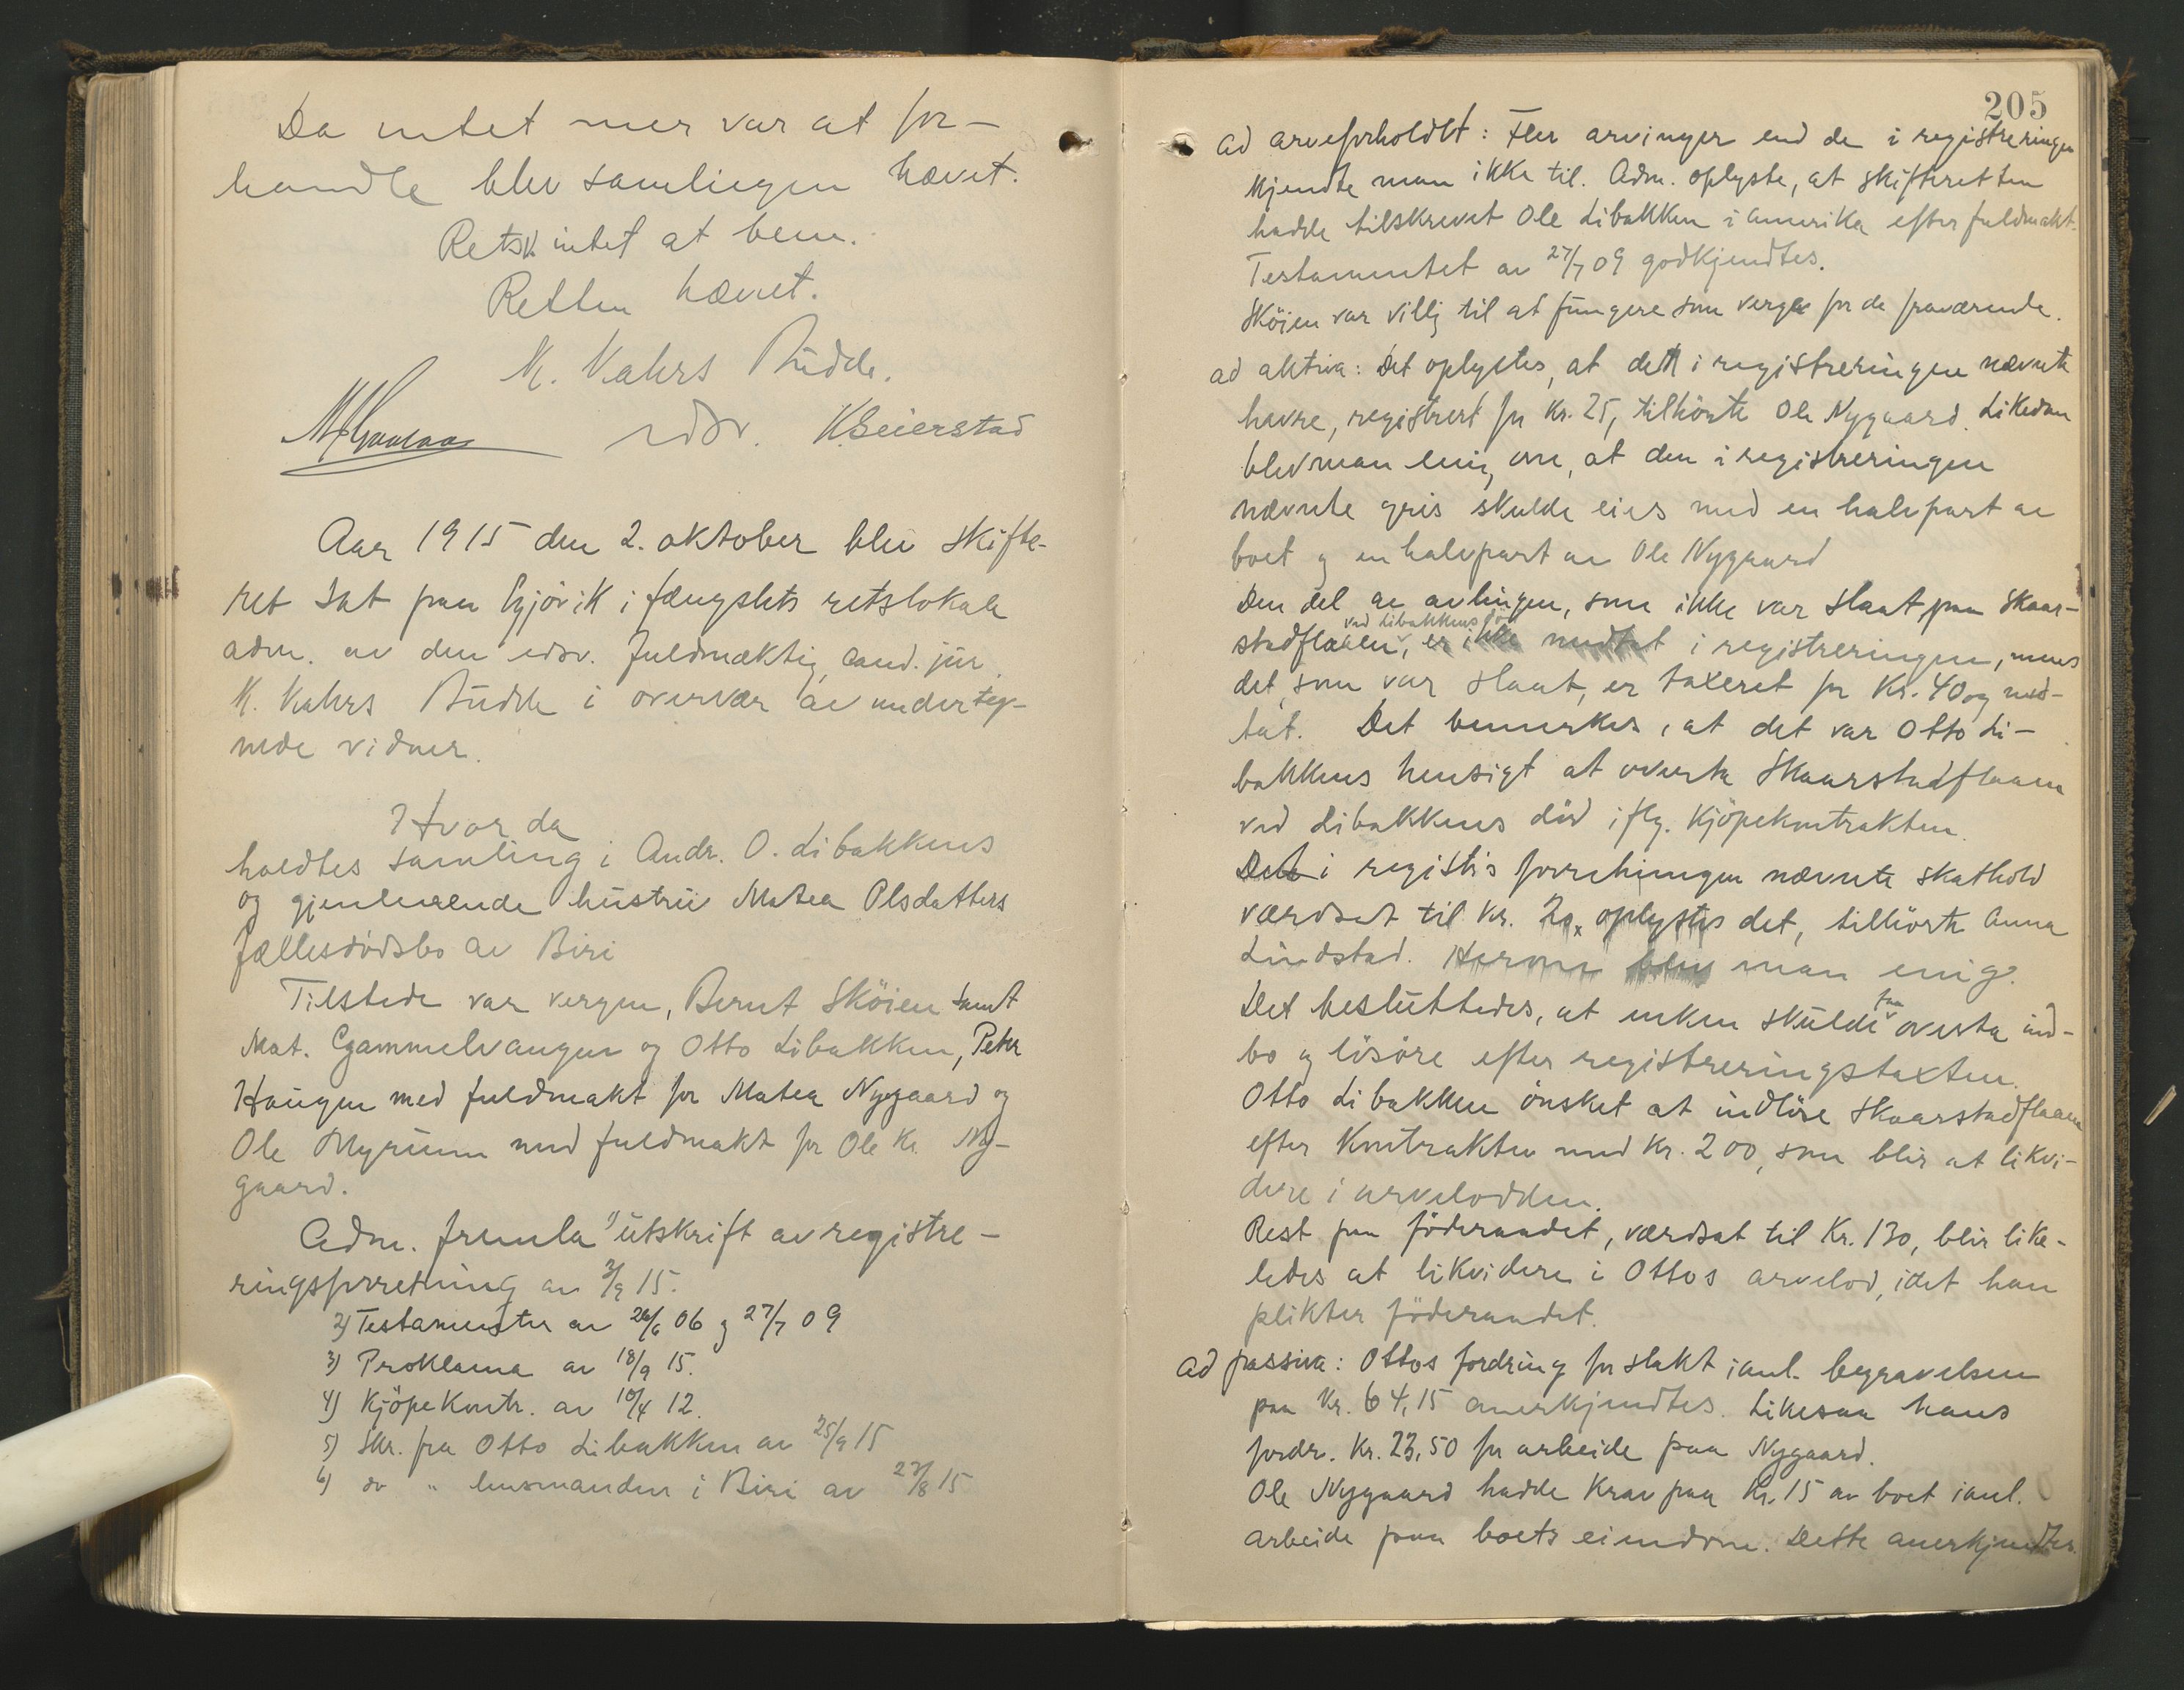 Da intet mer var at for-
handle blev samlingen hævet.
Retsv. intet at bem.
Retten hævet.
K. Kahrs Budde.
edsv. K. Seierstad
Aar 1915 den 2. oktober blev skifte-
ret sat paa Gjövik i fængslets retslokale
adm. av den edsv. fuldmæktig, cand. jur.
K. Kahrs Budde i overvær av underteg-
nede vidner.
Hvorda
holdtes samling i Andr. O. Libakkens
og gjenlevende hustru Matea Olsdatters
fællesdødsbo av Biri
Tilstede var vergen, Bernt Sköien samt
Mat. Gammelvangen og Otto Libakken, Peter
Haugen med fuldmakt for Matea Nygaard og
Ole Myrum med fuldmakt for Ole Kr. Ny-
gaard.
Adm. fremla 1) utskrift av registre-
ringsforretning av 3/9 15.
2) Testamenter av 26/6 06 og 27/7 09
3) Proklama av 18/9 15.
4) Kjöpekontr. av 10/4 12.
5) Skr. fra Otto Libakken av 25/9 15
6) do " lensmanden i Biri av 27/8 15
205
ad arveforholdet: Fler arvinger end de i registreringen
kjendte man ikke til. Adm. oplyste, at skifteretten
hadde tilskrevet Ole Libakken i Amerika efter fuldmakt.
Testamentet av 27/7 09 godkjendtes.
Sköien var villig til at fungere som verge for de fraværende.
ad aktiva: Det oplystes, at den i registreringen nævnte
havre, registrert for Kr. 25, tilhörte Ole Nygaard. Likedan
blev man enig om, at den i registreringen
nævnte gris skulde eies med en halvpart av
boet og en halvpart av Ole Nygaard
Den del av avlingen, som ikke var slaat paa Skaar-
ved Libakkens död
stadflaaen, er ikke medtat i registreringen, mens
det, som var slaat, er taxeret for Kr. 40 og med-
tat. Det bemerkes, at det var Otto Li-
bakkens hensigt at overta Skaarstadflaaen
ved Libakkens död iflg. Kjöpekontrakten.
Det i registr's forretningen nævnte skathold
værdsat til kr. 20, oplystes det, tilhörte Anna
Lundstad. Herom blev man enig.
faa
Det besluttedes, at enken skulde overta ind-
bo og lösöre efter registreringstaxten.
Otto Libakken önsket at indlöse Skaarstadflaaen
efter Kontrakten med Kr. 200, som blir at likvi-
dere i arvelodden.
Rest paa föderaadet, værdsat til Kr. 130, blir like-
ledes at likvidere i Ottos arvelod, idet han
plikter föderaadet.
ad passiva: Ottos fordring for slakt i anl. begravelsen
paa Kr. 64,15 anerkjendtes. Likesaa hans
fordr. Kr. 23,50 for arbeide paa Nygaard.
Ole Nygaard hadde krav paa Kr. 15 av boet i anl.
arbeide paa boets eiendom. Dette anerkjendtes.